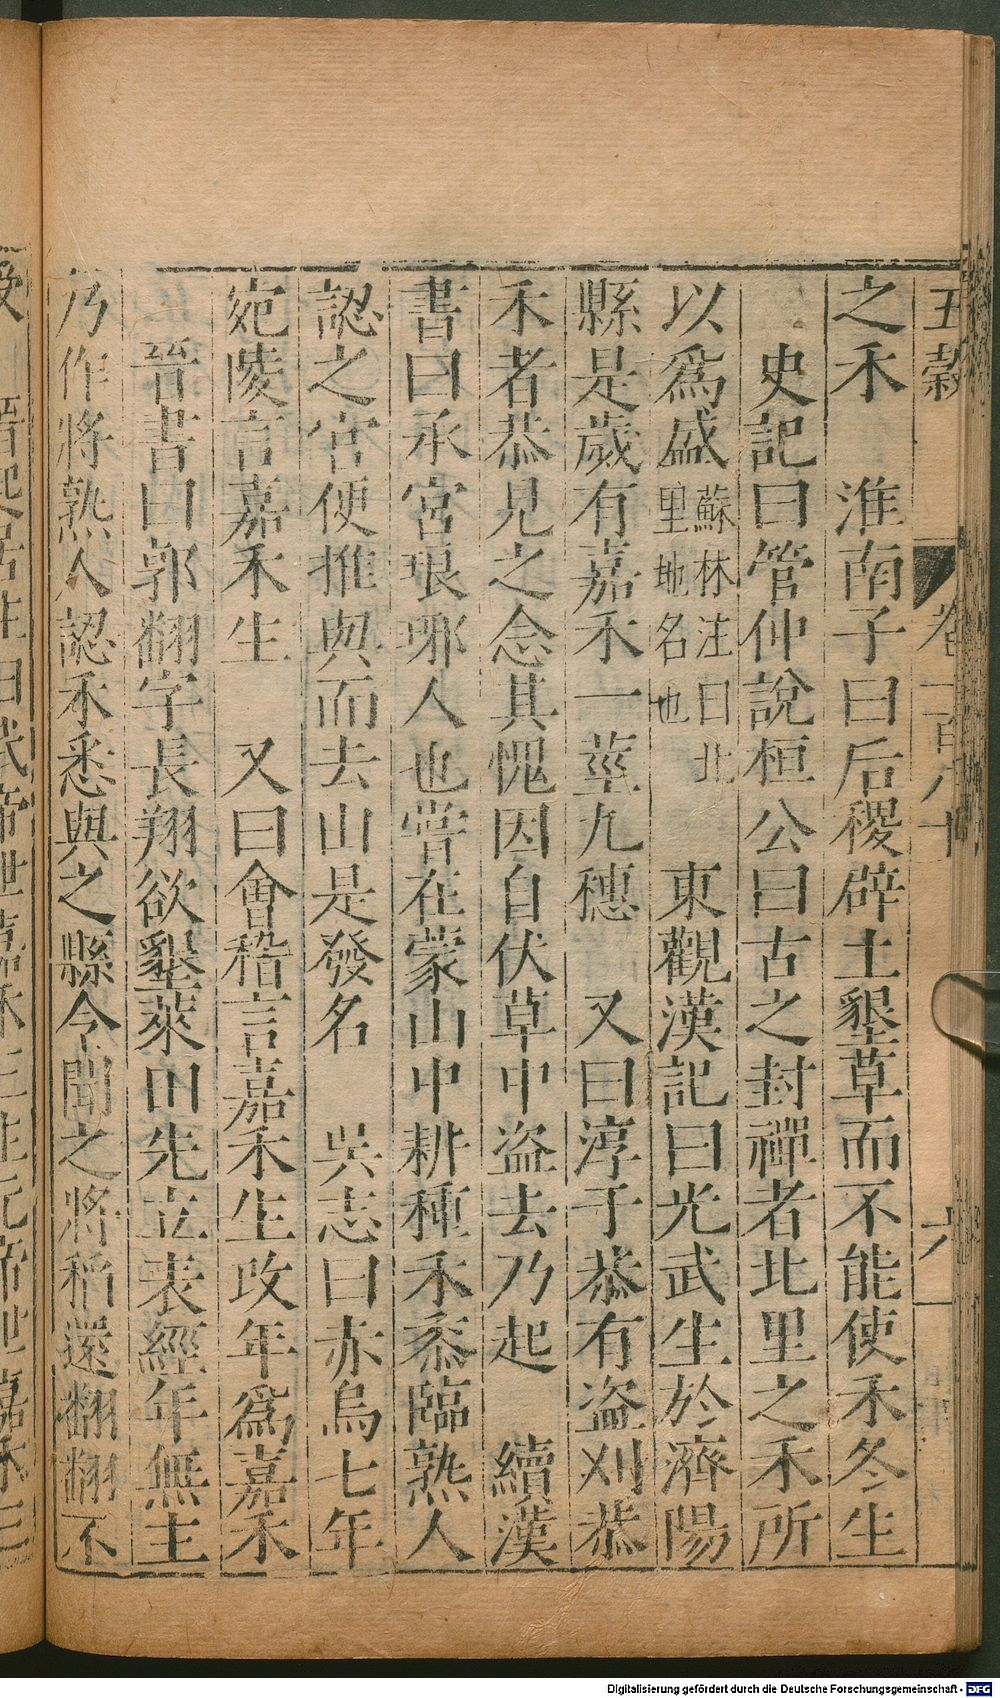 五穀 卷一百八十 六
之禾 淮南子曰后稷辟土墾草而不能使禾冬生
史記曰管仲說桓公曰古之封禪者北里之禾所
以爲盛 蘇林注曰北里地名也 東觀漢記曰光武生於濟陽
縣是歲有嘉禾一莖九穗 又曰淳于恭有盜刈恭
禾者恭見之念其愧因自伏草中盜去乃起 續漢
書曰承宮琅邪人也嘗在蒙山中耕種禾黍臨熟人
認之宮便推與而去山是發名 吳志曰赤烏七年
宛陵言嘉禾生 又曰會稽言嘉禾生改年爲嘉禾
晉書曰郭翻字長翔欲墾萊田先立表經年無主
乃作將熟人認禾悉與之縣令聞之將稻還翻翻不
受 晉起居注曰武帝世嘉禾三生元帝世嘉禾三
Digitalisierung gefördert durch die Deutsche Forschungsgemeinschaft - DFG